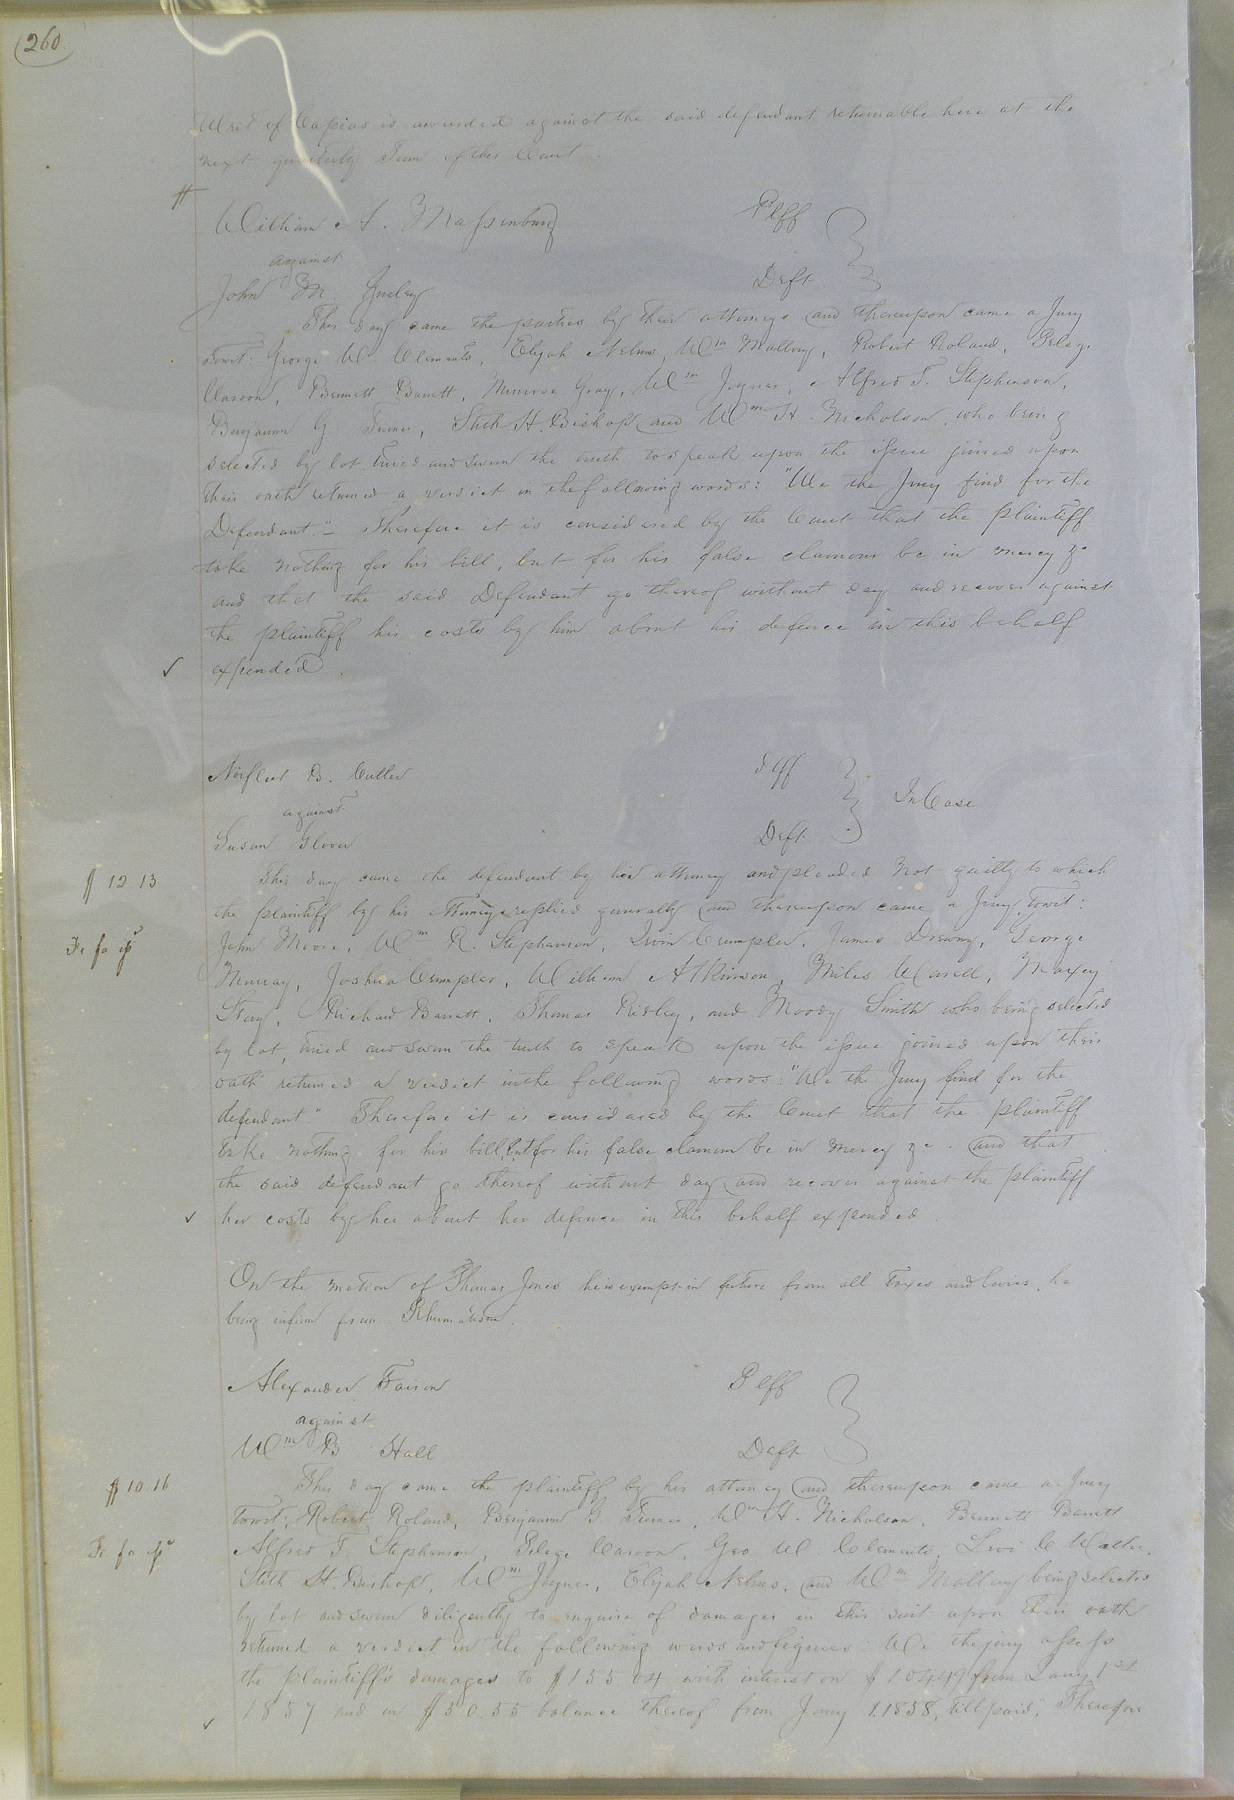 260
Writ of Capias is awarded against the said defendant returnable here at the
next quarterly Term of this Court.
#
William A. Massenburg Plff
against
John M. Gurley Deft
This day came the parties by their attorneys and thereupon came a Jury
Towit: George W. Clements, Elijah Nelms, Wm Mallory, Robert Roland, Peleg
Carson, Bennett Barrett, Munroe Gray, Wm Joyner, Alfred T. Stephenson,
Benjamin G Turner, Stith H. Bishop and Wm H. Nicholson, who being
selected by lot, tried and sworn the truth to speak upon the issue joined upon
their oath returned a verdict in the following words: "We the Jury find for the
Defendant." Therefore it is considered by the Court that the plaintiff
take nothing for his bill, but for his false clamour be in mercy &c
and that the said Defendant go thereof without day and recover against
the plaintiff his costs by him about his defence in this behalf
✓ expended.
Norfleet B. Cutler Plff
against In Case
Susan Glover Deft
$12.13 This day came the defendant by her attorney and pleaded not guilty to which
the plaintiff by his attorney replied generally and thereupon came a Jury, Towit:
Fi fa isd John Moore, Wm R. Stephenson, Irvin Crumpler, James Drewry, George
Murray, Joshua Crumpler, William Atkinson, Miles Worrell, Maxey
Ivey, Richard Barrett, Thomas Risley, and Moody Smith who being selected
by lot, tried and sworn the truth to speak upon the issue joined upon their
oath returned a verdict in the following words. "We the Jury find for the
defendant" Therefore it is considered by the Court that the plaintiff
take nothing for his bill, but for his false clamour be in mercy &c. and that
the said defendant go thereof without day and recover against the plaintiff
✓ her costs by her about her defence in this behalf expended.
On the motion of Thomas Jones he is exempt in future from all Taxes and levies, he
being infirm from Rheumatism.
Alexander Faison Plff
against
Wm B Hall Deft
$10.16 This day came the plaintiff by his attorney and thereupon came a Jury
towit; Robert Roland, Benjamin G. Turner, Wm H. Nicholson, Bennett Barrett
Fi fa isd Alfred T. Stephenson, Peleg Carson, Geo W. Clements, Levi C Waller,
Stith H. Bishop, Wm Joyner, Elijah Nelms, and Wm Mallory being selected
by lot and sworn diligently to enquire of damages in this suit upon their oath
returned a verdict in the following words and figures: We the jury assess
the plaintiff's damages to $155.04 with interest on $104.49 from Jany 1st
✓ 1857 and on $50.55 balance thereof from Jany 1. 1858, till paid; Therefore